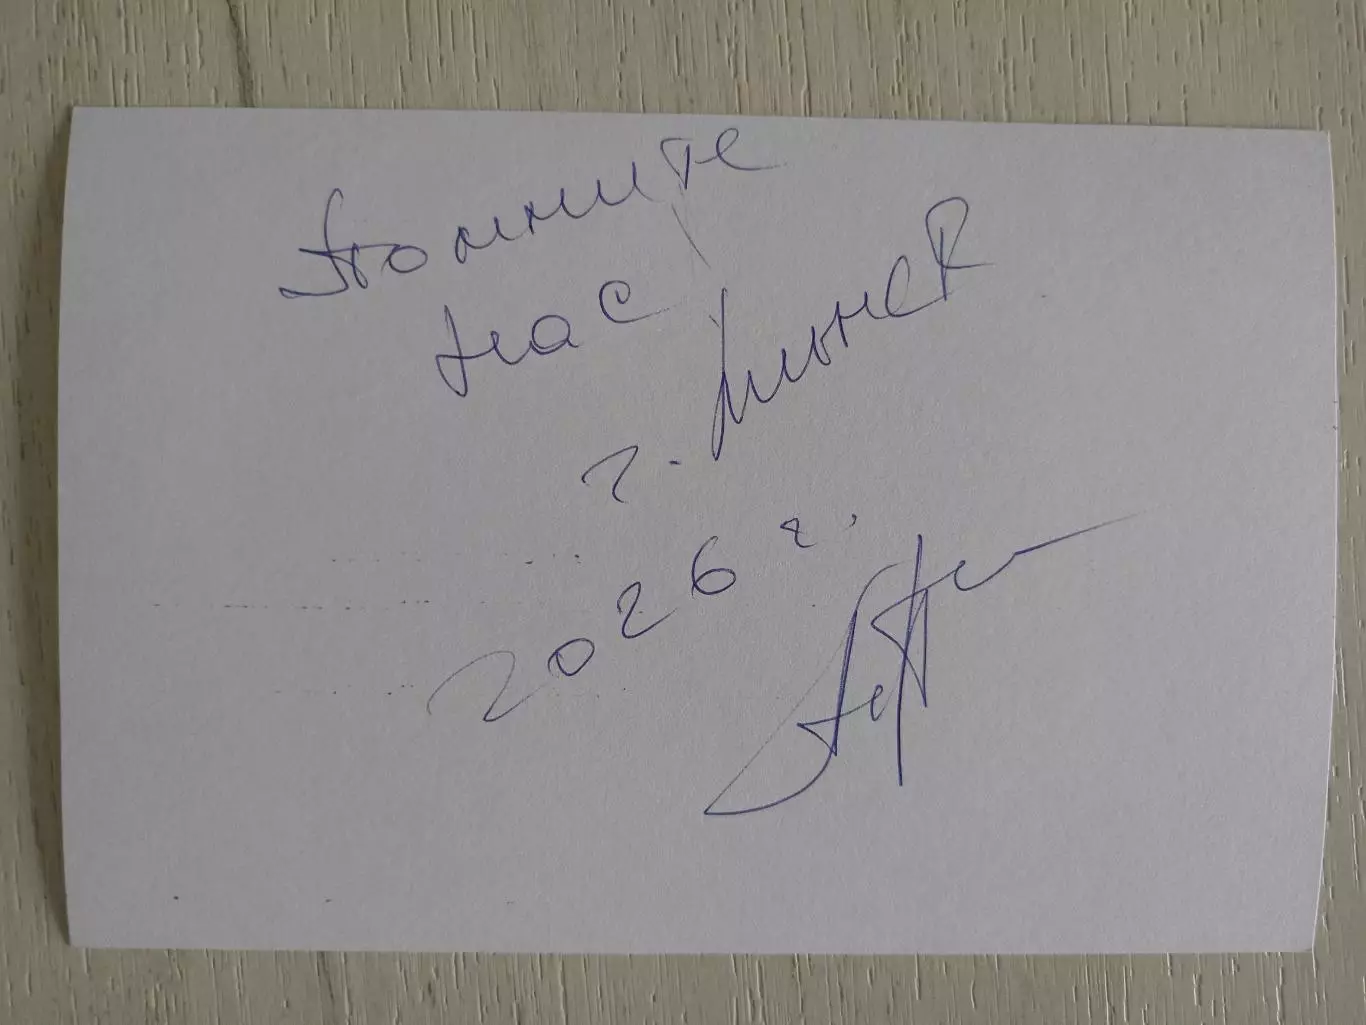 Помните
нас
г. Минск
2026 г.